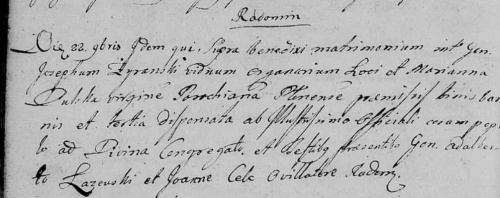 Radomin
Die 22. 9bris Idem qui supra Benedixi matrimonium int. Gen.
Josephum viduum Organarium Loci et Marianna
virgine Parochiana præmissis binis ban
nis et tertia dispensata ab Illustrissimo Officiali coram popu
lo ad Divina Congregato et testibus præsentibus Gen. Adalber
to Lazewski et Joanne Radom.